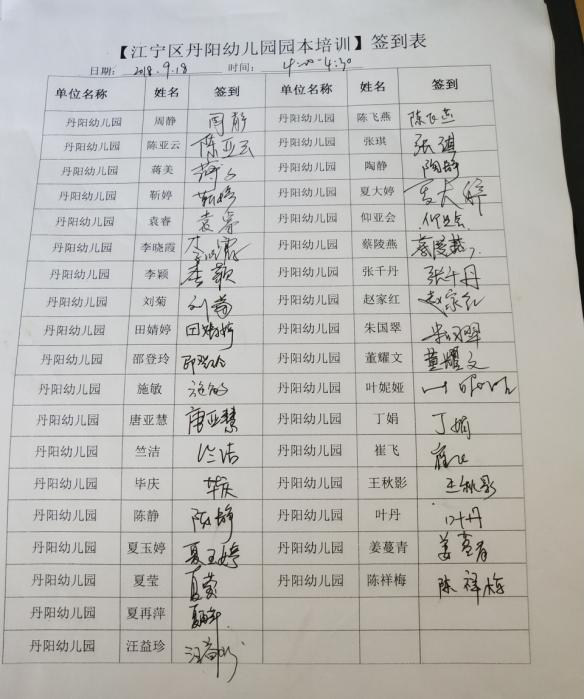 【江宁区丹阳幼儿园园本培训】签到表
日期: 2018.9.18 时间: 4:00-4:30
单位名称 姓名 签到 单位名称 姓名 签到
丹阳幼儿园 周静 周静 丹阳幼儿园 陈飞燕 陈飞燕
丹阳幼儿园 陈亚云 陈亚云 丹阳幼儿园 张琪 张琪
丹阳幼儿园 蒋美 丹阳幼儿园 陶静 陶静
丹阳幼儿园 靳婷 靳婷 丹阳幼儿园 夏大婷 夏大婷
丹阳幼儿园 袁睿 袁睿 丹阳幼儿园 仰亚会 仰亚会
丹阳幼儿园 李晓霞 李晓霞 丹阳幼儿园 蔡陵燕 蔡陵燕
丹阳幼儿园 李颖 李颖 丹阳幼儿园 张千丹 张千丹
丹阳幼儿园 刘菊 刘菊 丹阳幼儿园 赵家红 赵家红
丹阳幼儿园 田婧婷 田婧婷 丹阳幼儿园 朱国翠 朱国翠
丹阳幼儿园 邵登玲 邵登玲 丹阳幼儿园 董耀文 董耀文
丹阳幼儿园 施敏 施敏 丹阳幼儿园 叶妮娅
丹阳幼儿园 唐亚慧 唐亚慧 丹阳幼儿园 丁娟 丁娟
丹阳幼儿园 竺洁 竺洁 丹阳幼儿园 崔飞 崔飞
丹阳幼儿园 毕庆 毕庆 丹阳幼儿园 王秋影 王秋影
丹阳幼儿园 陈静 陈静 丹阳幼儿园 叶丹 叶丹
丹阳幼儿园 夏玉婷 夏玉婷 丹阳幼儿园 姜蔓青 姜蔓青
丹阳幼儿园 夏莹 夏莹 丹阳幼儿园 陈祥梅 陈祥梅
丹阳幼儿园 夏再萍
丹阳幼儿园 汪益珍 汪益珍